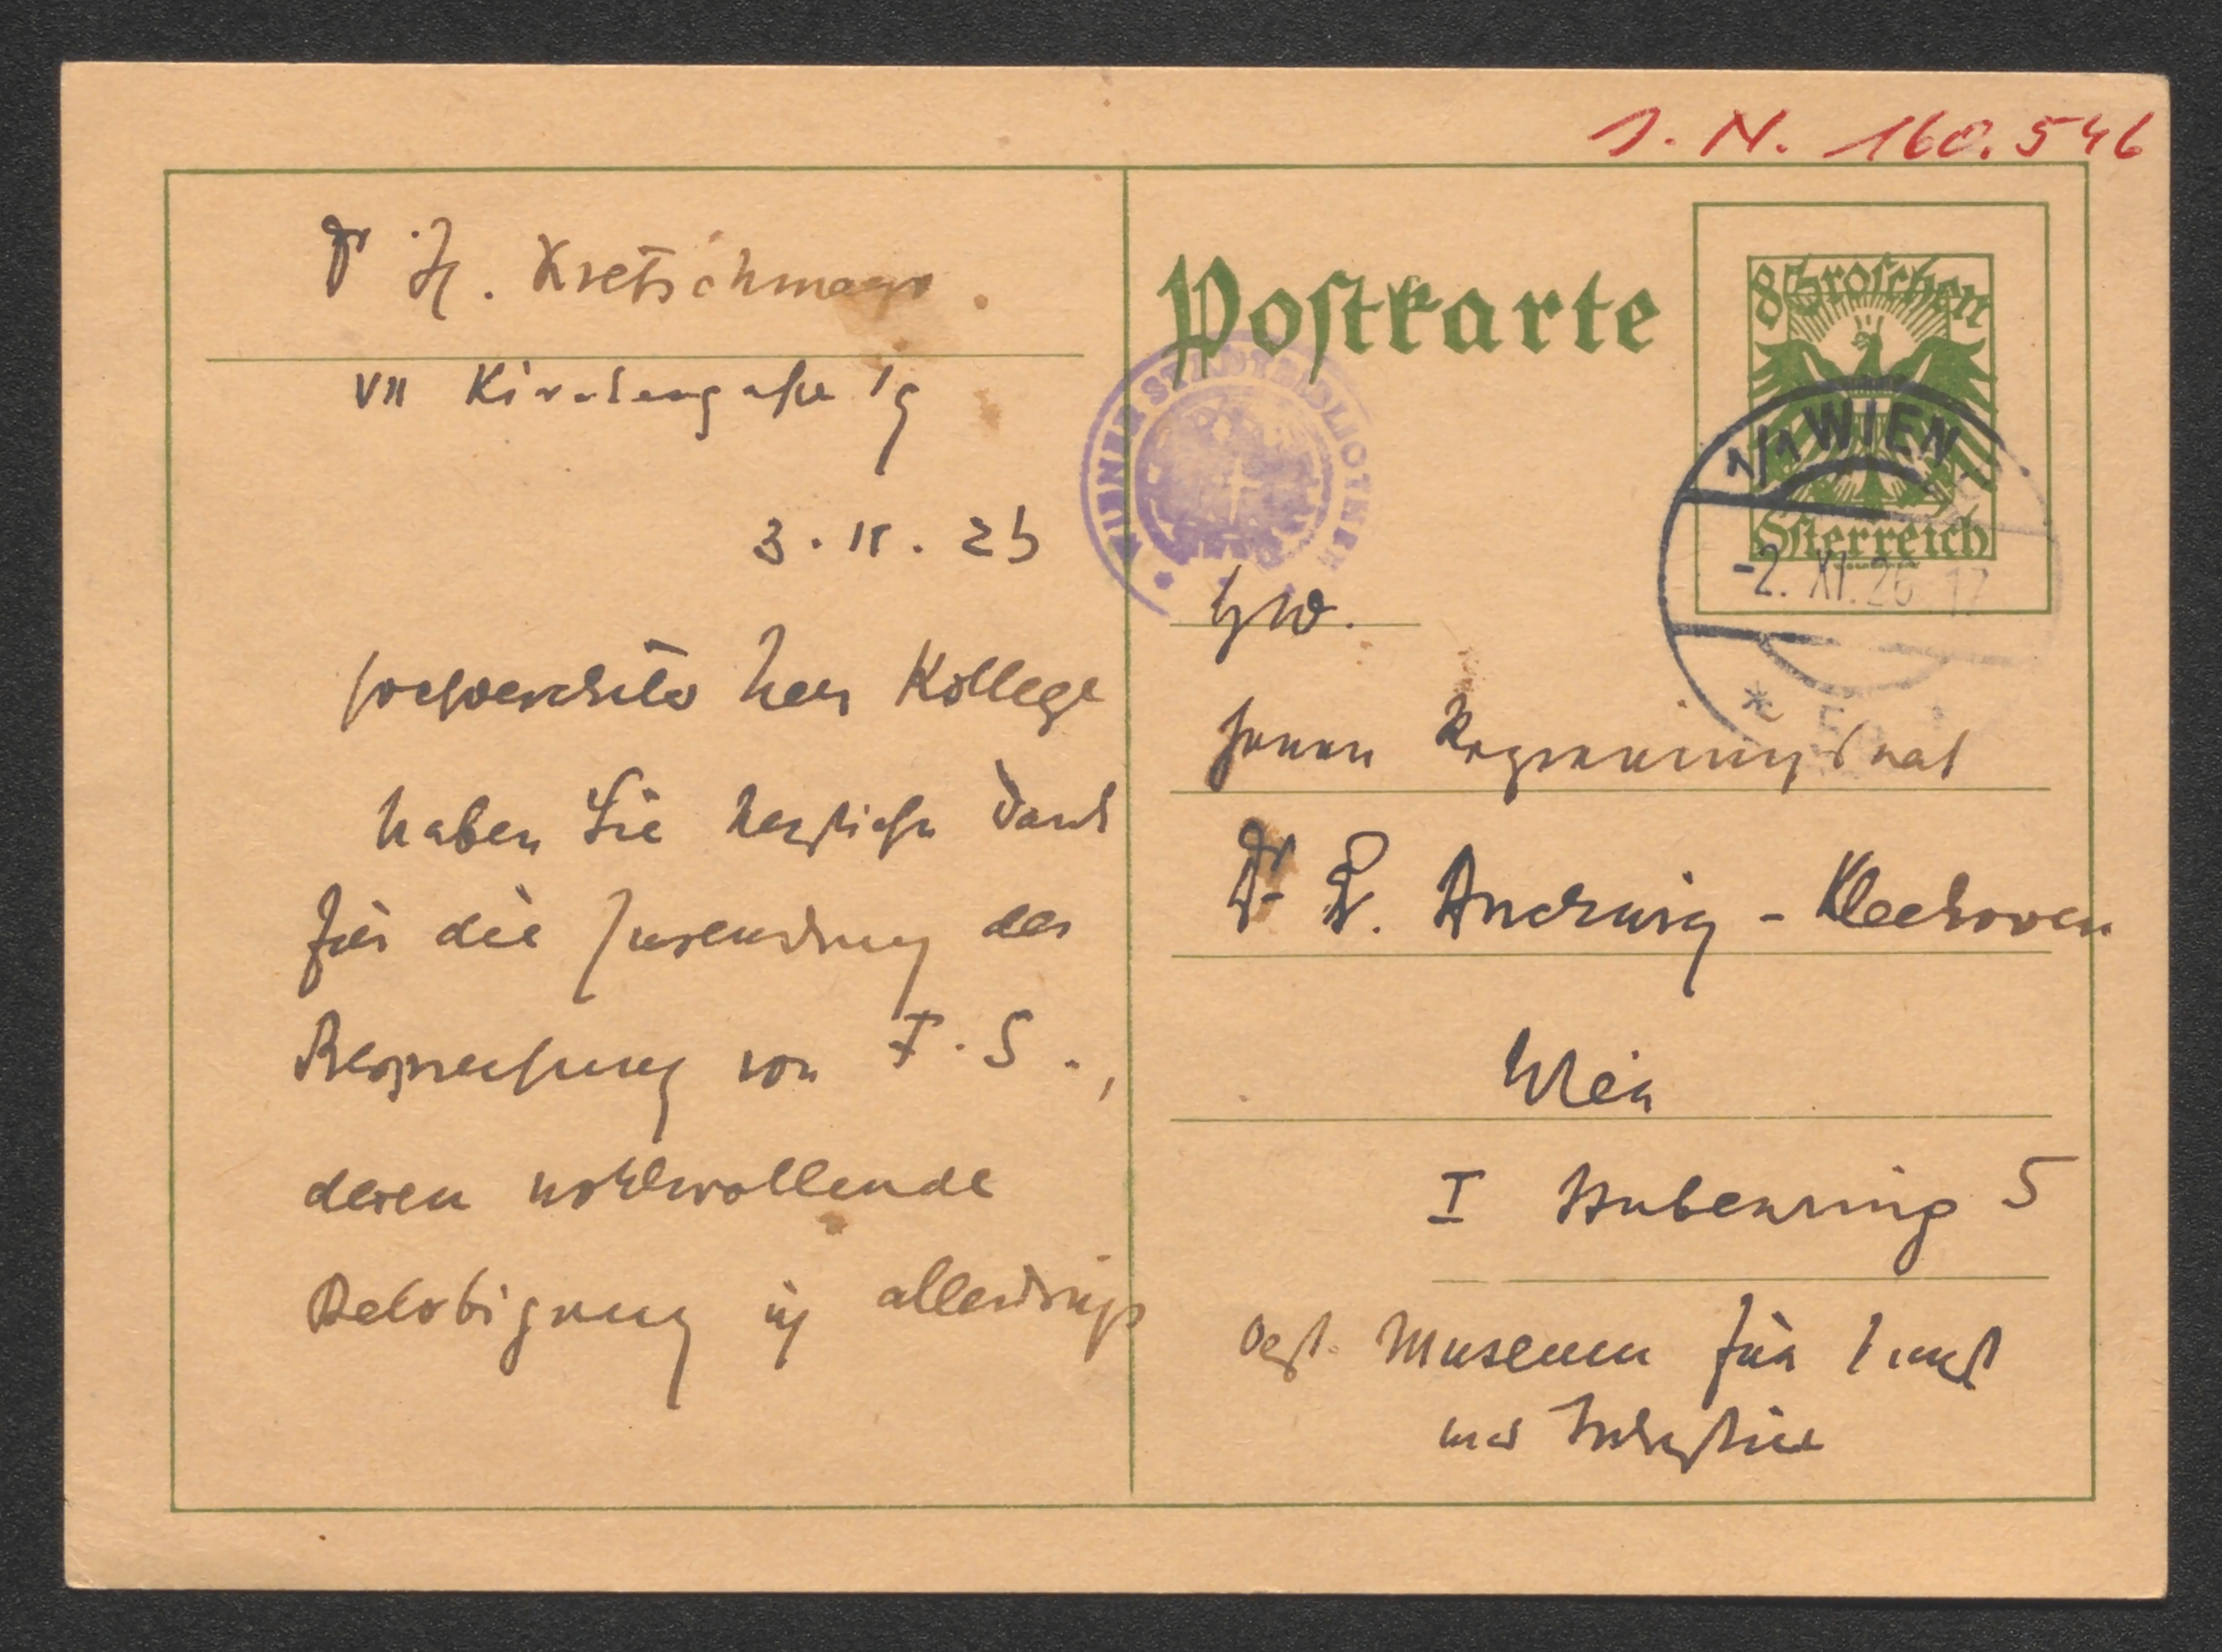 I. N. 160.546
Dr H. Kretschmayr.
VII Kirchengasse 19
3. 11. 26
Hochverehrter Herr Kollege
haben Sie herzlichen Dank
für die Zusendung der
Besprechung von F. S.,
deren wohlwollende
Belobigung ich allerdings
Postkarte
8 Groschen
Österreich
1/1 WIEN
-2. XI. 26 17
WIENER STADTBIBLIOTHEK
Herrn Regierungsrat
Dr H. Ankwicz-Kleehoven
Wien
I Stubenring 5
Oest. Museum für Kunst
und Industrie